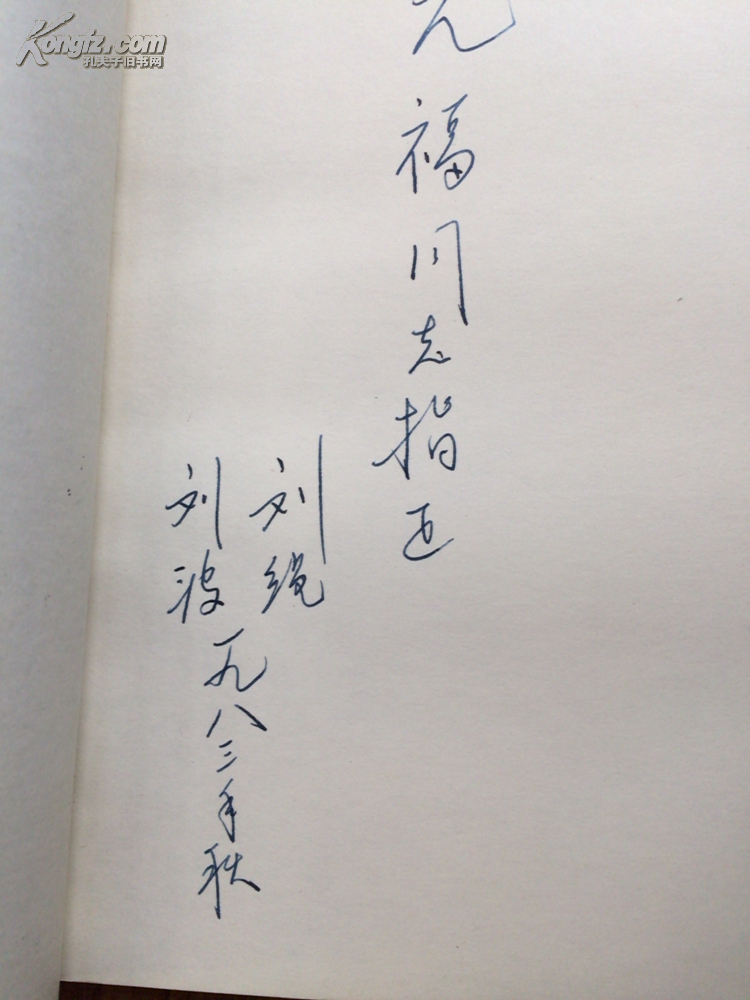 福同志指正
刘绳
刘波
一九八三年秋
Kongfz.com
孔夫子旧书网